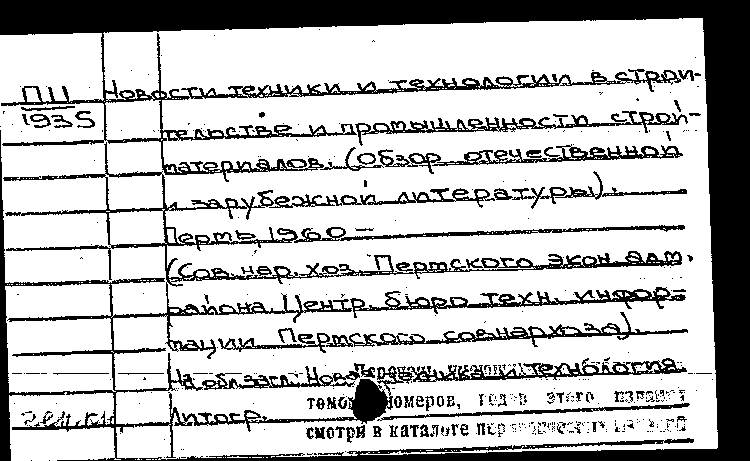 П11 Новости техники и технологии в строи-
1935 тельстве и промышленности строй-
материалов. (Обзор отечественной
и зарубежной литературы).
Пермь, 1960 –
(Сов. нар. хоз. Пермского экон. адм.
района. Центр. бюро техн. инфор-
мации Пермского совнархоза).
На обл. загл.: Новая техника и технология.
Литогр.
томов номеров, годов этого издания
смотри в каталоге